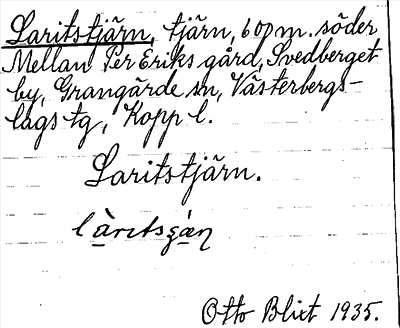 Laritstjärn, tjärn, 600 m. söder
Mellan Per Eriks gård, Svedberget
by, Grangärde sn, Västerbergs-
lags tg, Kopp l.
Laritstjärn.
làritsgàn
Otto Blixt 1935.